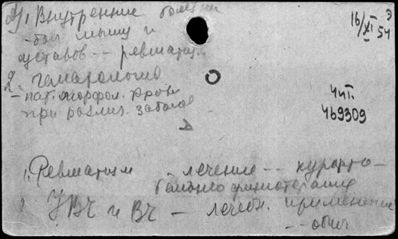 1) Внутренние болезни
- бол. мышц и
суставов -- ревматизм
2. гематология
- пат. морфол. крови
при различ. заболев
16/XI 54
Э
чит.
469309
1, Ревматизм - лечение -- курорто-
бальнео физиотерапия
УВЧ и ВЧ - лечебн. применение
-- общ